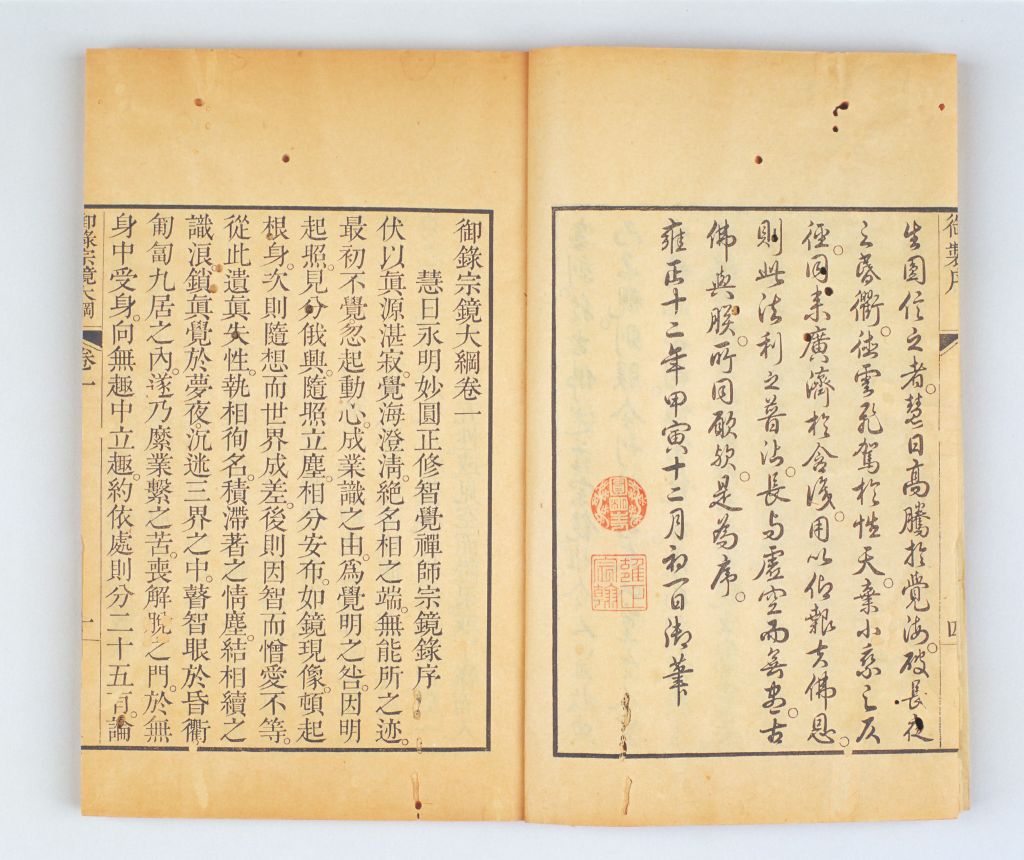 御製序 四
生圓信之者。慧日高騰於覺海。破長夜
之昏衢。德雲飛駕於性天。棄小乘之仄
徑。同來廣濟於含識。用以仰報佛恩。
則此法利之普沾。長与虛空而無盡。古
佛與朕。所同願欤。是為序。
雍正十二年甲寅十二月初一日御筆
雍正宸翰
御錄宗鏡大綱卷一
慧日永明妙圓正修智覺禪師宗鏡錄序
伏以眞源湛寂。覺海澄淸。絶名相之端。無能所之迹。
最初不覺。忽起動心。成業識之由。爲覺明之咎。因明
起照。見分俄興。隨照立塵。相分安布。如鏡現像。頓起
根身。次則隨想而世界成差。後則因智而憎愛不等。
從此遺眞失性。執相徇名。積滯著之情塵。結相續之
識浪。鎖眞覺於夢夜。沉迷三界之中。瞽智眼於昏衢。
匍匐九居之內。遂乃縻業繫之苦。喪解脫之門。於無
身中受身。向無趣中立趣。約依處則分二十五有。論
御錄宗鏡大綱 卷一 一